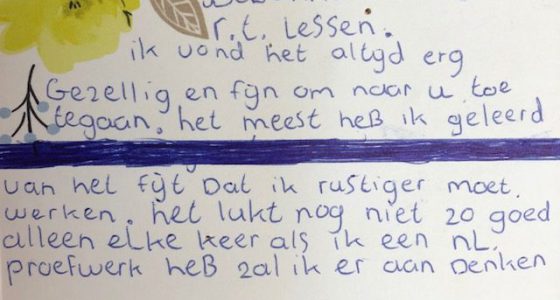 r.t. Lessen.
ik vond het altyd erg
Gezellig en fyn om naar u toe
tegaan. het meest heb ik geleerd
van het fyt Dat ik rustiger moet.
werken. het lukt nog niet zo goed
alleen elke keer als ik een nL.
proefwerk heb zal ik er aan Denken